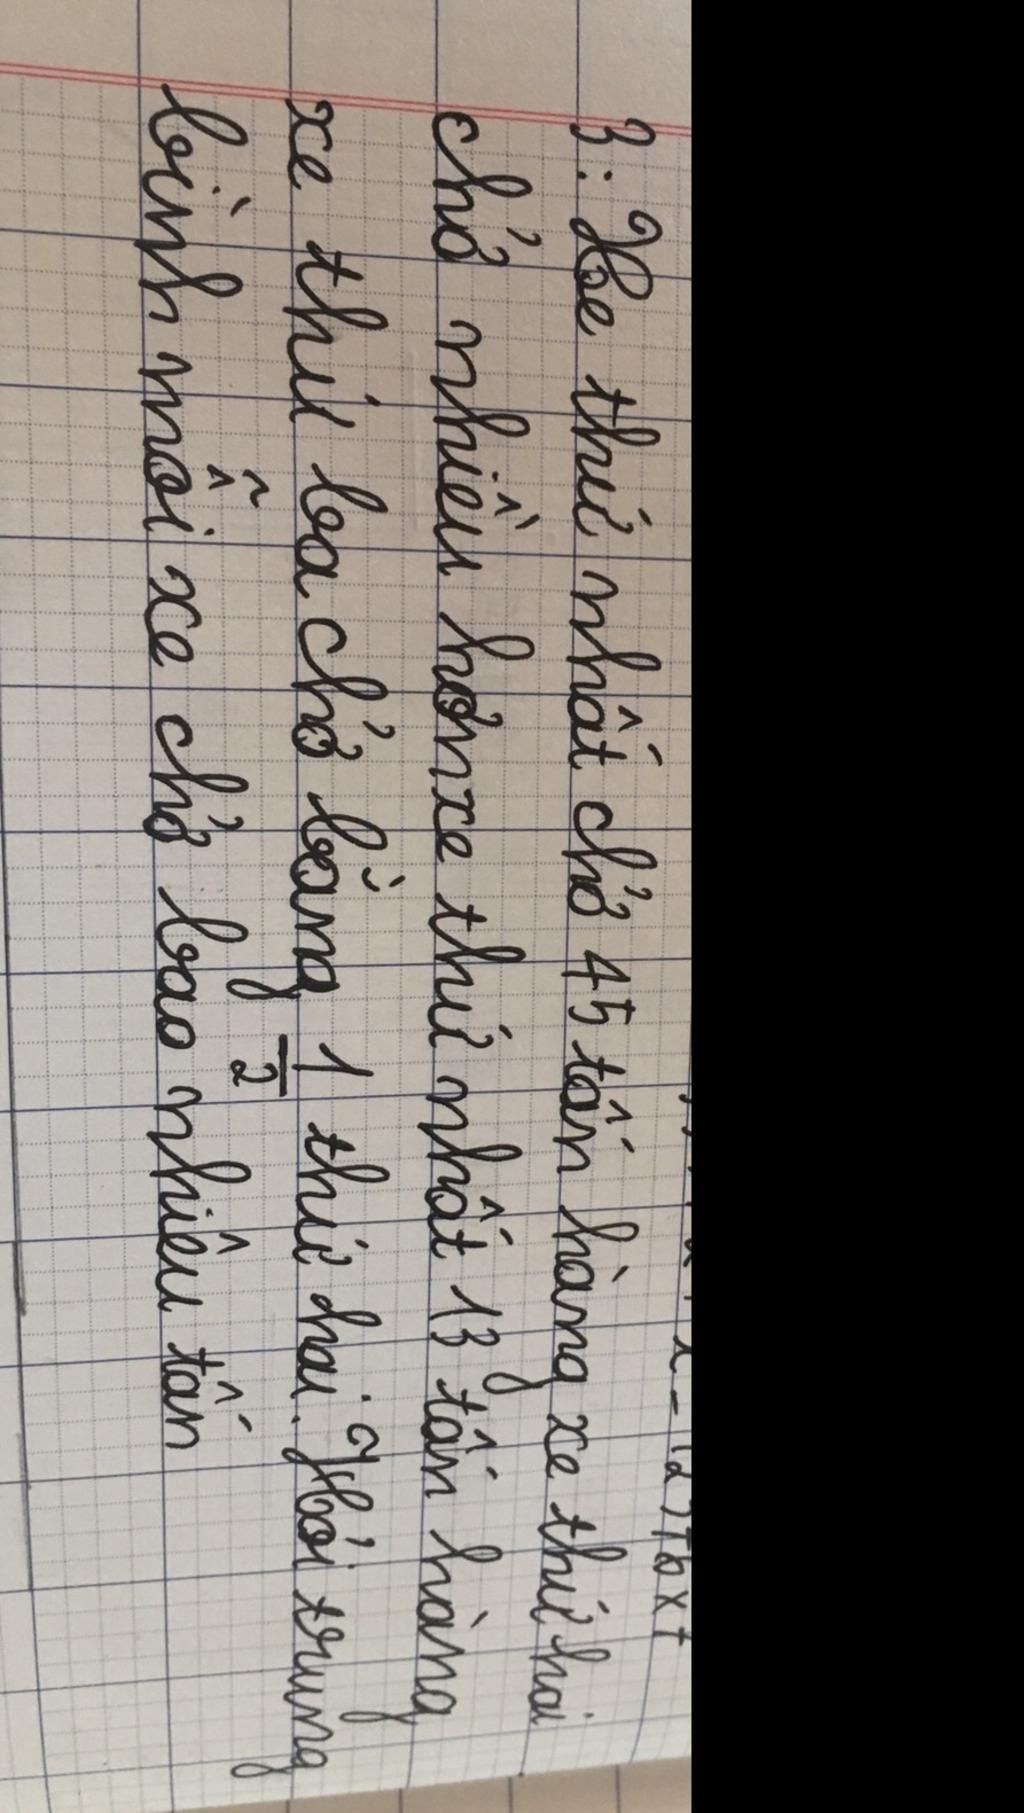 3: Xe thứ nhất chở 45 tấn hàng xe thứ hai
chở nhiều hơn xe thứ nhất 13 tấn hàng
xe thứ ba chở bằng 1/2 thứ hai. Hỏi trung
bình mỗi xe chở bao nhiêu tấn